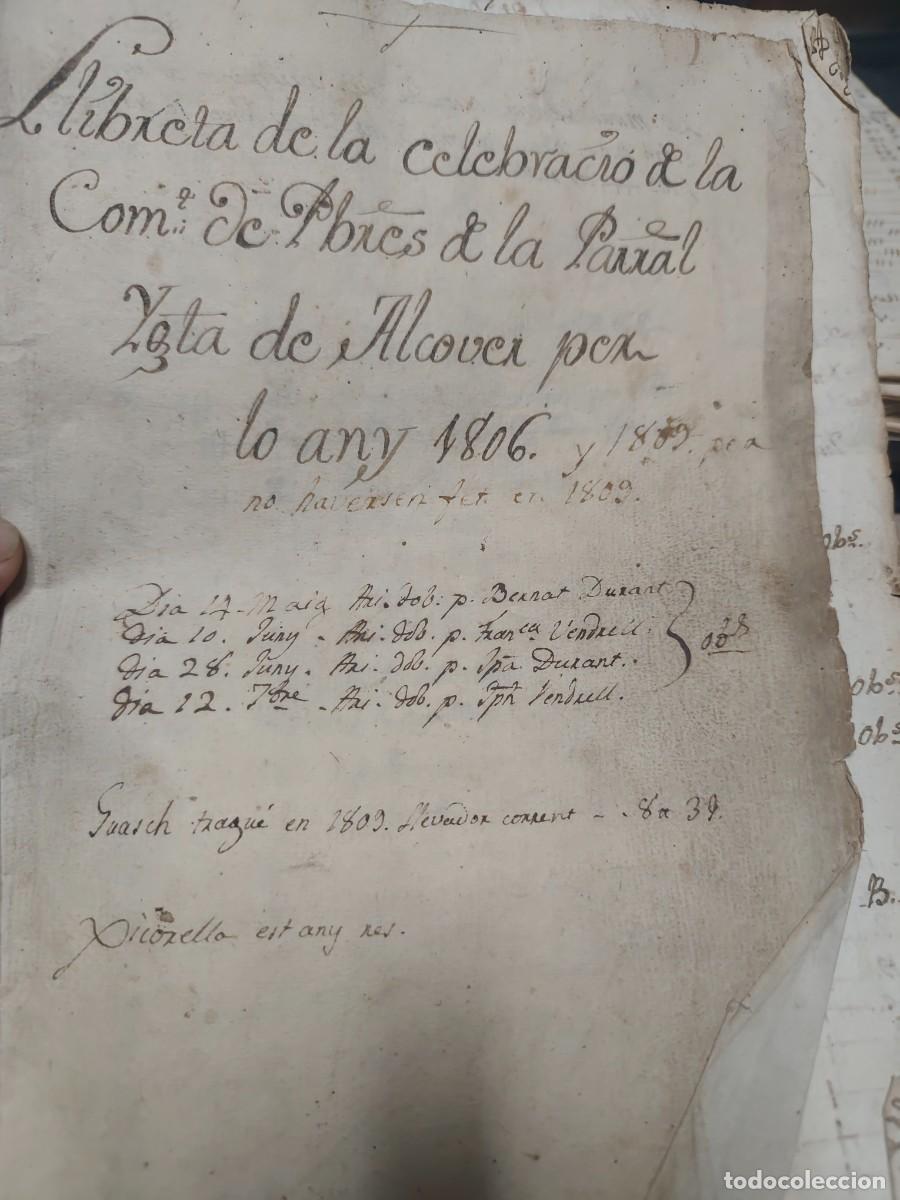 Llibreta de la celebració de la
Com.t de Pbres de la Parral
Ygta de Alcover per
lo any 1806. y 1809. per
no haversen fet en 1809.
Dia 14 Maig Ani. dob: p. Bernat Durant
Dia 10. Juny - Ani. dob. p. Franca Vendrell.
Dia 28. Juny. - Ani. dob. p. Jpa Durant.
Dia 12. 7bre - Ani. dob. p. Jph Vendrell.
Guasch tragué en 1809. llevador corrent - 8a 39.
Picorella est any res.
obs.
obs
obs
B.
todocoleccion